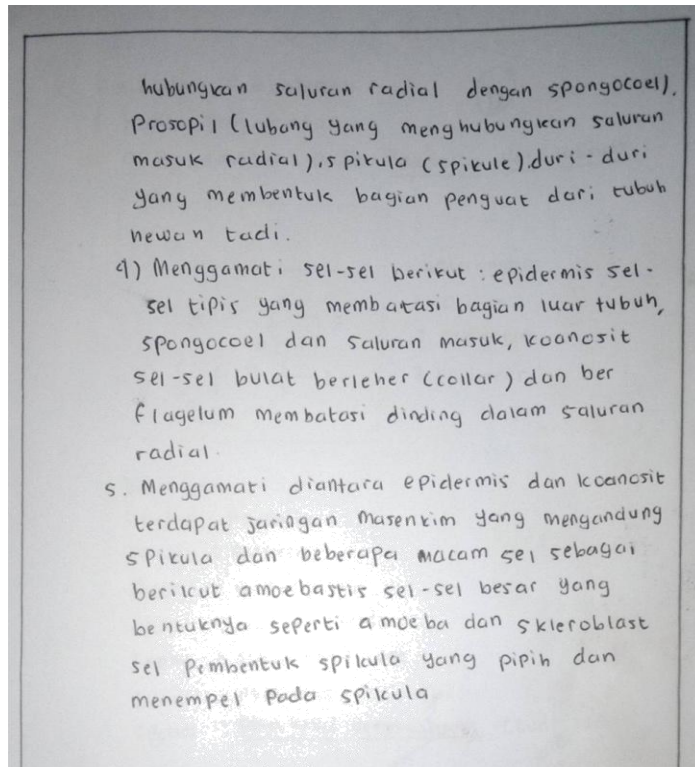 hubungkan saluran radial dengan spongocoel).
Prosopil (lubang yang menghubungkan saluran
masuk radial), spikula (spikule).duri-duri
yang membentuk bagian penguat dari tubuh
hewan tadi.
4) Menggamati sel-sel berikut : epidermis sel-
sel tipis yang membatasi bagian luar tubuh,
spongocoel dan saluran masuk, koanosit
sel-sel bulat berleher (collar) dan ber
flagelum membatasi dinding dalam saluran
radial.
5. Menggamati diantara epidermis dan koanosit
terdapat jaringan masenkim yang mengandung
spikula dan beberapa macam sel sebagai
berikut amoebastis sel-sel besar yang
bentuknya seperti amoeba dan skleroblast
sel Pembentuk spikula yang pipih dan
menempel Pada spikula